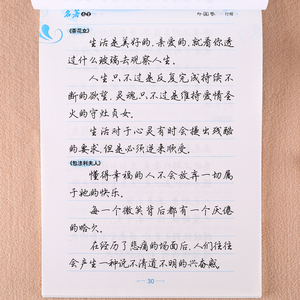 名著
行楷
《茶花女》
生活是美好的,亲爱的,就看你透
过什么玻璃去观察人生。
人生只不过是反复完成持续不
断的欲望,灵魂只不过是维持爱情圣
火的守灶贞女。
生活对于心灵有时会提出残酷
的要求,但是必须逆来顺受。
《包法利夫人》
懂得幸福的人不会放弃一切属
于她的快乐。
每一个微笑背后都有一个厌倦
的哈欠。
在经历了悲痛的场面后,人们往往
会产生一种说不清道不明的兴奋感。
30